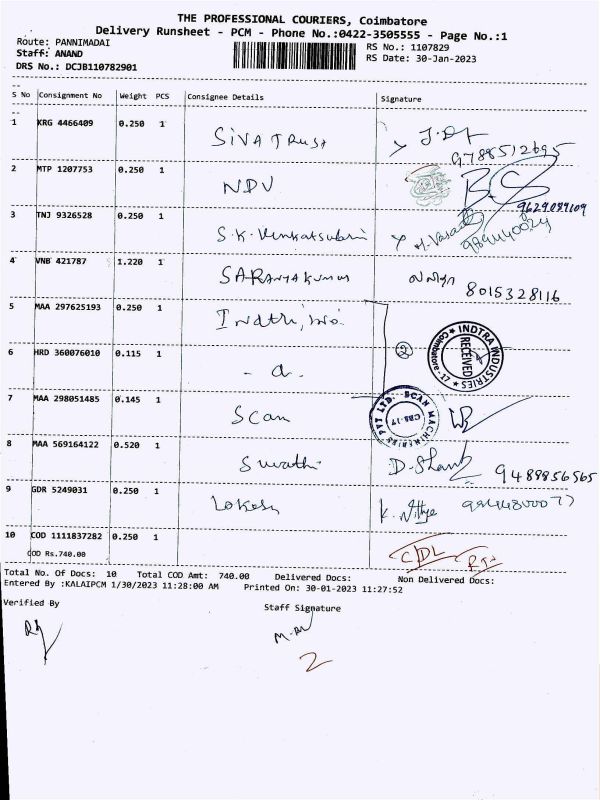 THE PROFESSIONAL COURIERS, Coimbatore
Delivery Runsheet - PCM - Phone No.:0422-3505555 - Page No.:1
Route: PANNIMADAI
Staff: ANAND
DRS No.: DCJB110782901
RS No.: 1107829
RS Date: 30-Jan-2023
S No Consignment No Weight PCS Consignee Details Signature
1 KRG 4466409 0.250 1 SIVA TRUST 9788512695
2 MTP 1207753 0.250 1 NDV 9629089109
3 TNJ 9326528 0.250 1
4 VNB 421787 1.220 1 SARANYAKUMAR 8015328116
5 MAA 297625193 0.250 1
INDTRA INDUSTRIES
RECEIVED
Coimbatore-17
6 HRD 360076010 0.115 1 - a.
7 MAA 298051485 0.145 1 Scan
SCAN MACHINERIES PVT LTD.
CBE-17
8 MAA 569164122 0.520 1 Swathi D. 9489856565
9 GDR 5249031 0.250 1 Lokesh K. Nithya
10 COD 1111837282 0.250 1
COD Rs.740.00
CDL
Total No. Of Docs: 10 Total COD Amt: 740.00 Delivered Docs: Non Delivered Docs:
Entered By :KALAIPCM 1/30/2023 11:28:00 AM Printed On: 30-01-2023 11:27:52
Verified By Staff Signature
2